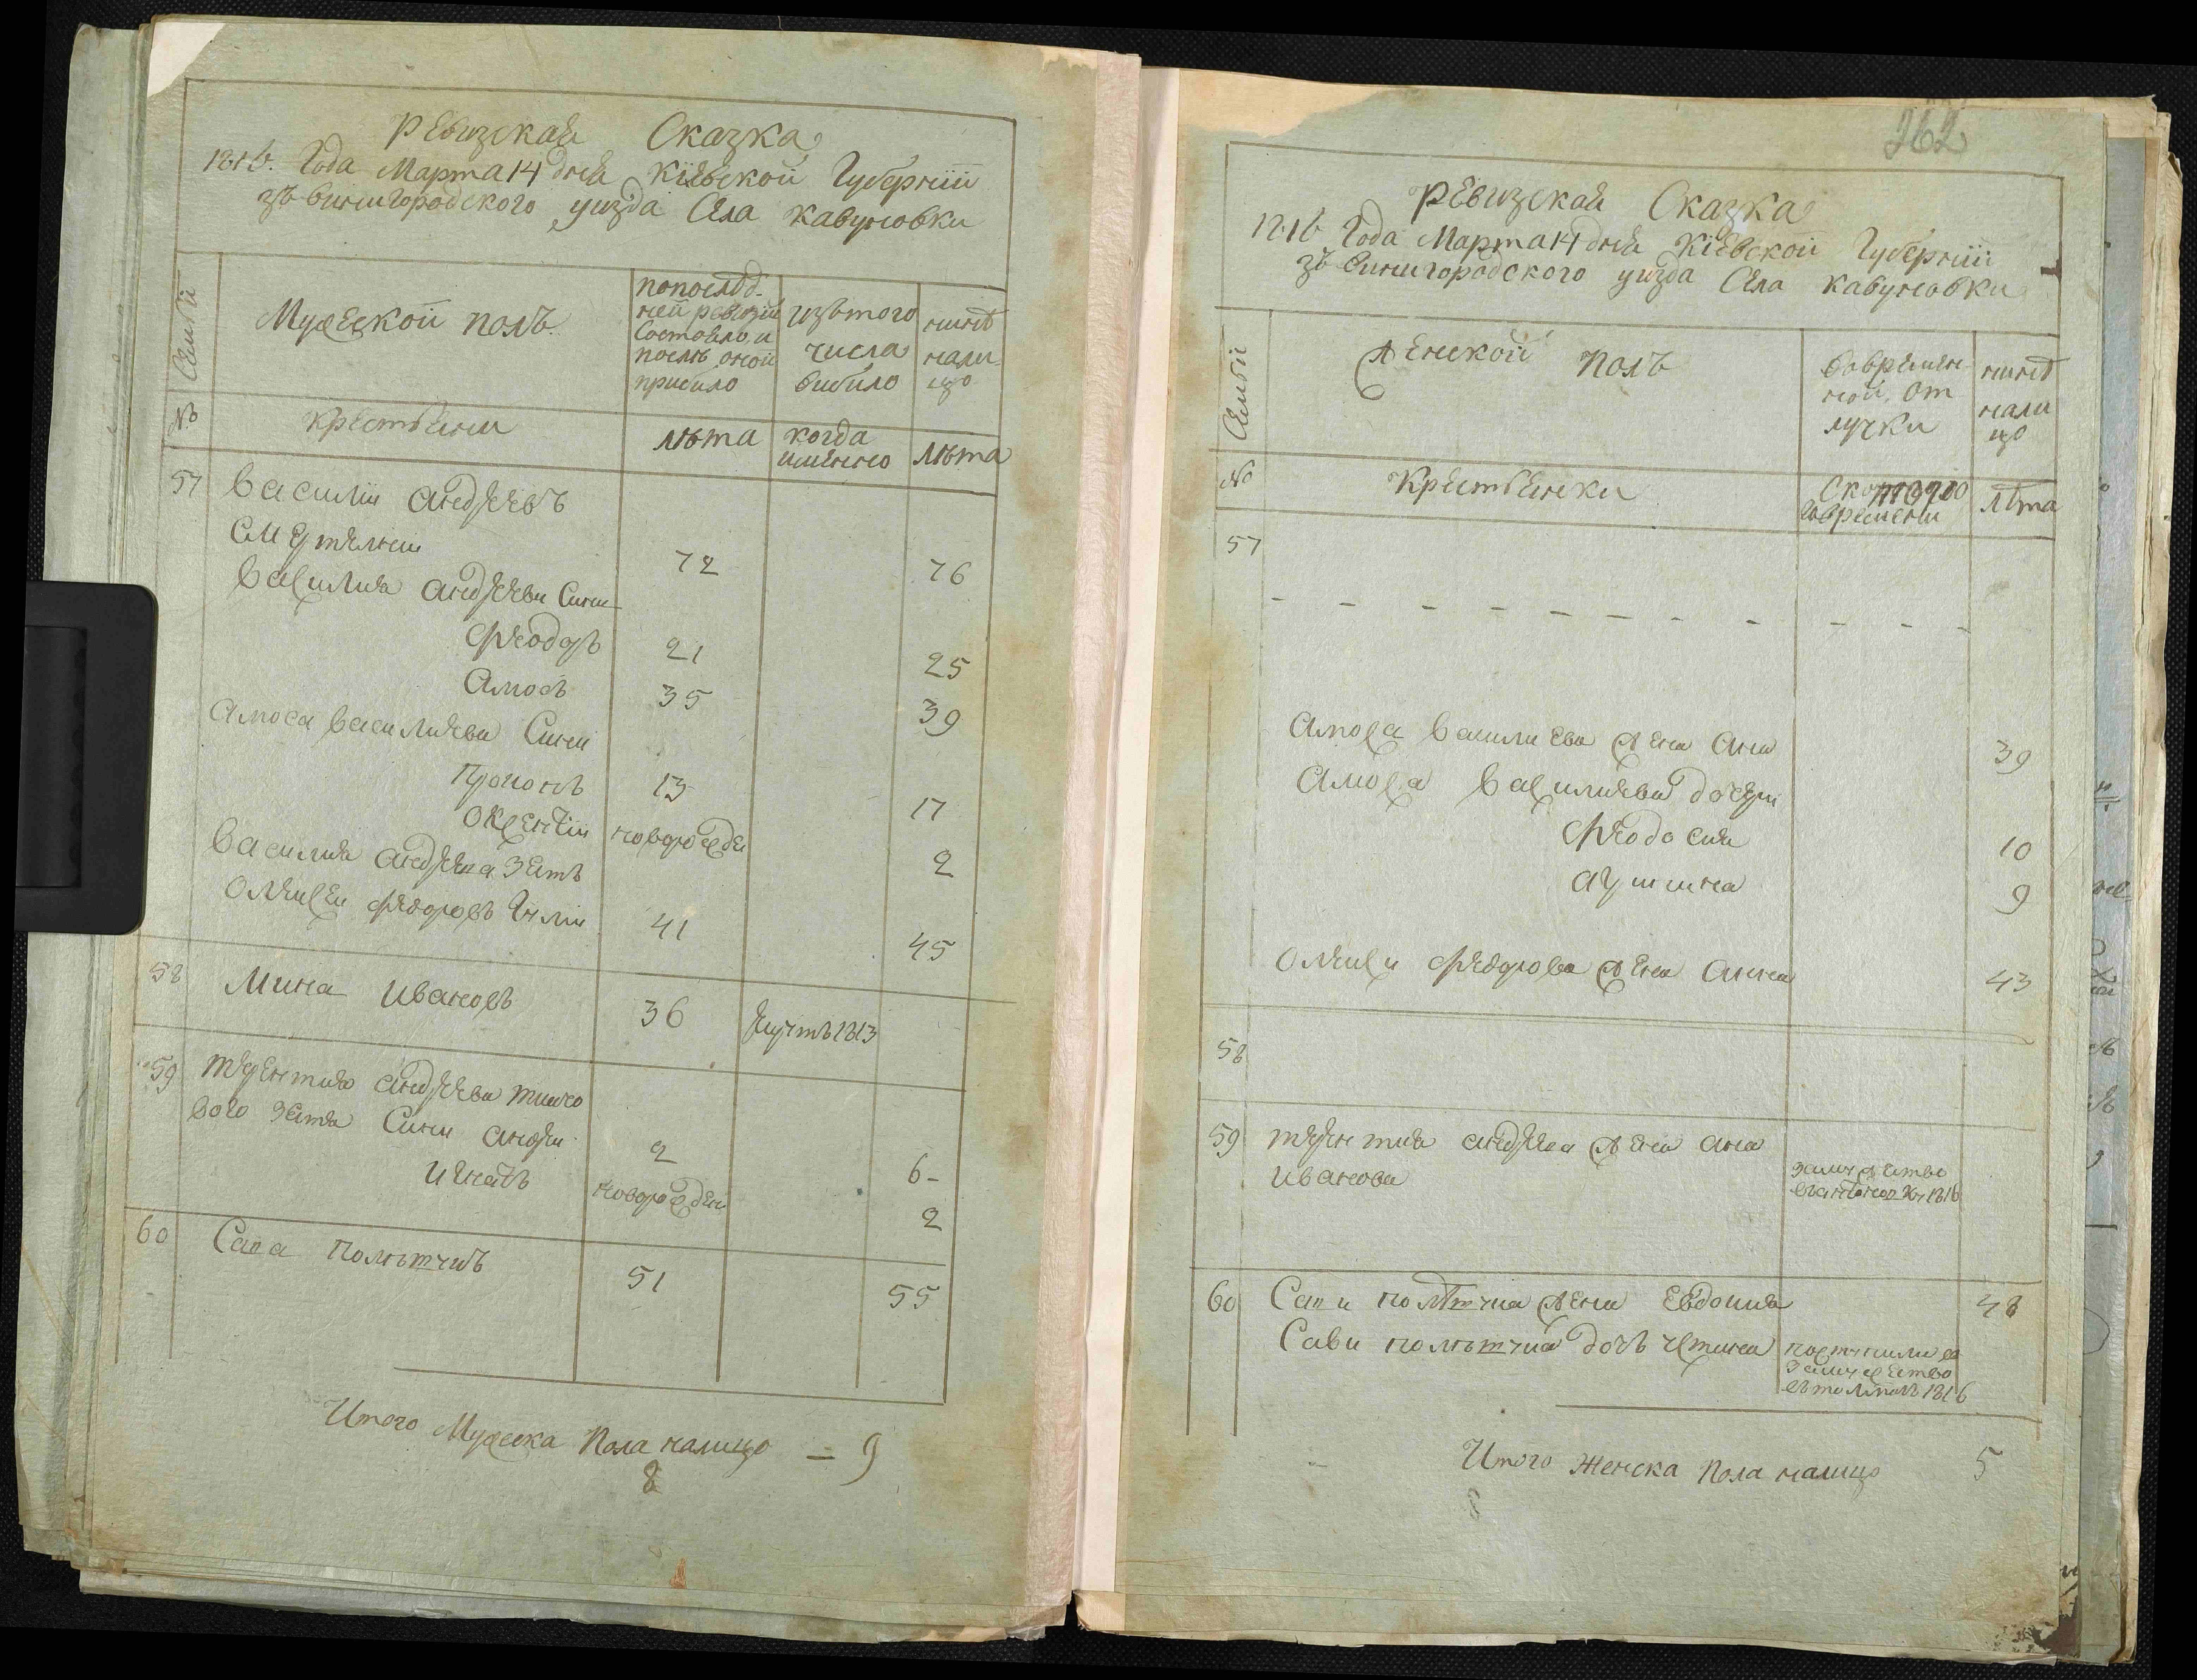 Ревизская Сказка
1816. Года Марта 14 дня Кіевской Губерніи
зъвинигородского уизда Села кавуновки
Семьи
Мужеской полъ
попослѣд-
ней ревизіи
Состояло, и
послѣ оной
прибило
изътого
числа
вибило
нинѣ
нали-
цо
№
крестьяни
лѣта
когда
именно
лѣта
57
Василіи андреевъ
72
76
Василия андреева Сини
Феодоръ
21
25
Амосъ
35
39
Амоса василиева Сини
13
17
новорожде
2
Василия андреева Зять
41
45
58
Мина Ивановъ
36
1813
59
терентия андреева
вого зятя Сини андреи
2
6-
Игнатъ
новорожден
2
60
Сава
51
55
Итого Мужеска Пола налицо — 9
8
262
Ревизская Сказка
1816 Года Марта 14 дня Кіевской Губерніи
зъвинигородского уизда Села кавуновки
Семьи
Женской полъ
вовремен-
ной от
лучки
нинѣ
нали
цо
№
Крестьянки
Скоторого
времени
лѣта
57
- - - - - - - - - -
Амоса василиева жена Анна
39
Амоса василиева дочери
Феодосия
10
9
федорова жена Анна
43
58
59
терентия андреева жена анна
Иванова
замужество
1816
60
жена Евдокия
48
Сави дочъ устина
замужество
1816
Итого женска Пола налицо 5